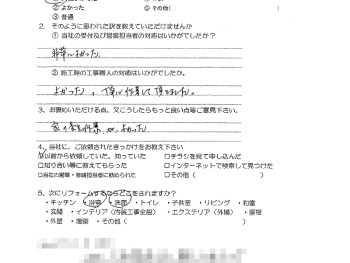 ② よかった　⑤ その他（　　）
③ 普通
2. そのように思われた訳を教えていただけませんか
① 当社の受付及び営業担当者の対応はいかがでしたか？
非常によかった。
② 施工時の工事職人の対応はいかがでしたか。
よかった
3、お褒めいただける点、又こうしたらもっと良い点等ご意見下さい。
よかった
4、当社に、ご依頼されたきっかけをお教え下さい
以前から依頼していた。知っていた　□チラシを見て申し込んだ
□知り合い等に教えてもらった　□インターネットで検索して見つけた
□当社の営業・修繕担当者に勧められた　□その他（　　）
5、次にリフォームするならどこをされますか？
・キッチン ・浴室 ・洗面 ・トイレ ・子供室 ・リビング ・和室
・玄関 ・インテリア（内装工事全般） ・エクステリア（外構） ・屋根
・外壁 ・増築 ・その他（　　）